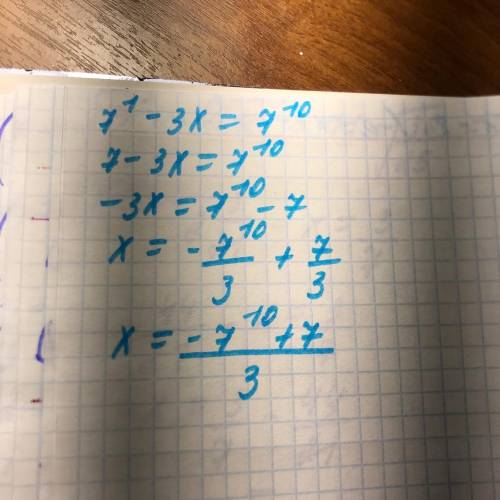 7¹ - 3x = 7¹⁰
7 - 3x = 7¹⁰
-3x = 7¹⁰ - 7
x = -7¹⁰/3 + 7/3
x = (-7¹⁰ + 7)/3